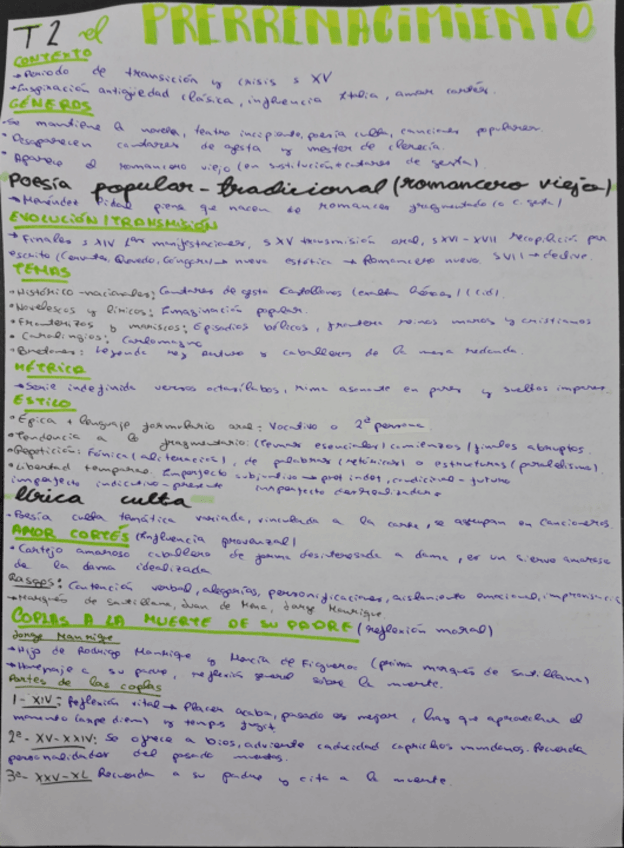 T2 el PRERRENACIMIENTO
CONTEXTO
→ Periodo de transición y crisis s XV
→ Inspiración antigüedad clásica, influencia Italia, amor cortés.
GÉNEROS
Se mantiene la novela, teatro incipiente, poesía culta, canciones populares
• Desaparecen cantares de gesta y mester de clerecía.
• Aparece el romancero viejo (en sustitución cantares de gesta).
Poesía popular-tradicional (romancero viejo)
→ Menéndez Pidal piensa que nacen de romances fragmentado (o c. gesta)
EVOLUCIÓN/TRANSMISIÓN
→ Finales s XIV 1as manifestaciones, s XV transmisión oral, s XVI-XVII recopilación por
escrito (Cervantes, Quevedo, Góngora) → nueva estética → Romancero nuevo. SVII → declive.
TEMAS
• Histórico-nacionales: Cantares de gesta Castellanos (exalta héroes) (Cid).
• Novelescos y líricos: Imaginación popular.
• Fronterizos y moriscos: Episodios bélicos, frontera reinos moros y cristianos
• Carolingios: Carlomagno
• Bretones: Leyenda rey Arturo y caballeros de la mesa redonda.
MÉTRICA
→ Serie indefinida versos octosílabos, rima asonante en pares y sueltos impares.
ESTILO
• Épica + lenguaje formulario oral: Vocativo o 2ª persona.
• Tendencia a lo fragmentario: (Temas esenciales) comienzos/finales abruptos.
• Repetición: Fónica (aliteración), de palabras (retóricas) o estructuras (paralelismo).
• Libertad temporal. Imperfecto subjuntivo → pret indef, condicional - futuro
imperfecto indicativo-presente imperfecto desrealizador
lírica culta
• Poesía culta temática variada, vinculada a la corte, se agrupan en Cancioneros.
AMOR CORTÉS (influencia provenzal)
• Cortejo amoroso caballero de forma desinteresada a dama, es un siervo amoroso
de la dama idealizada
Rasgos: Contención verbal, alegorías, personificaciones, aislamiento emocional,
→ Marqués de Santillana, Juan de Mena, Jorge Manrique.
COPLAS A LA MUERTE DE SU PADRE (reflexión moral)
Jorge Manrique
→ Hijo de Rodrigo Manrique y Mencía de Figueroa (prima marqués de Santillana)
→ Homenaje a su padre, reflexión general sobre la muerte.
Partes de las coplas
1- XIV: Reflexión vital → Placer acaba, pasado es mejor, hay que aprovechar el
momento (carpe diem) y tempus fugit
2ª- XV-XXIV: Se ofrece a Dios, advierte caducidad caprichos mundanos. Recuerda
personalidades del pasado muertas.
3ª- XXV-XL Recuerda a su padre y cita a la muerte.